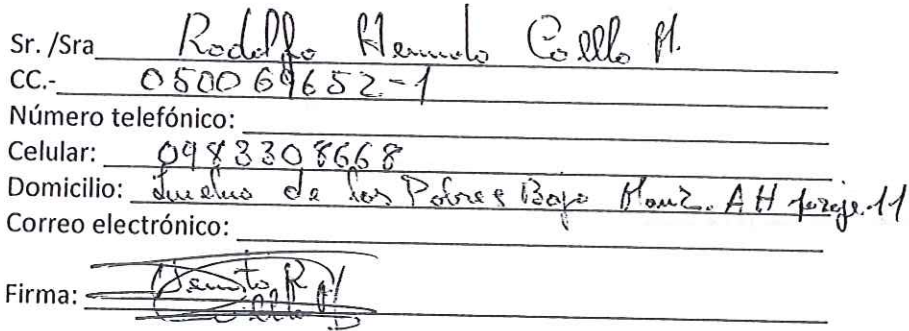 Sr. /Sra Rodolfo Coello M.
CC.- 050069652-1
Número telefónico:
Celular: 0983308668
Domicilio: de los Pobres Bajo Manz. AH 11
Correo electrónico:
Firma: